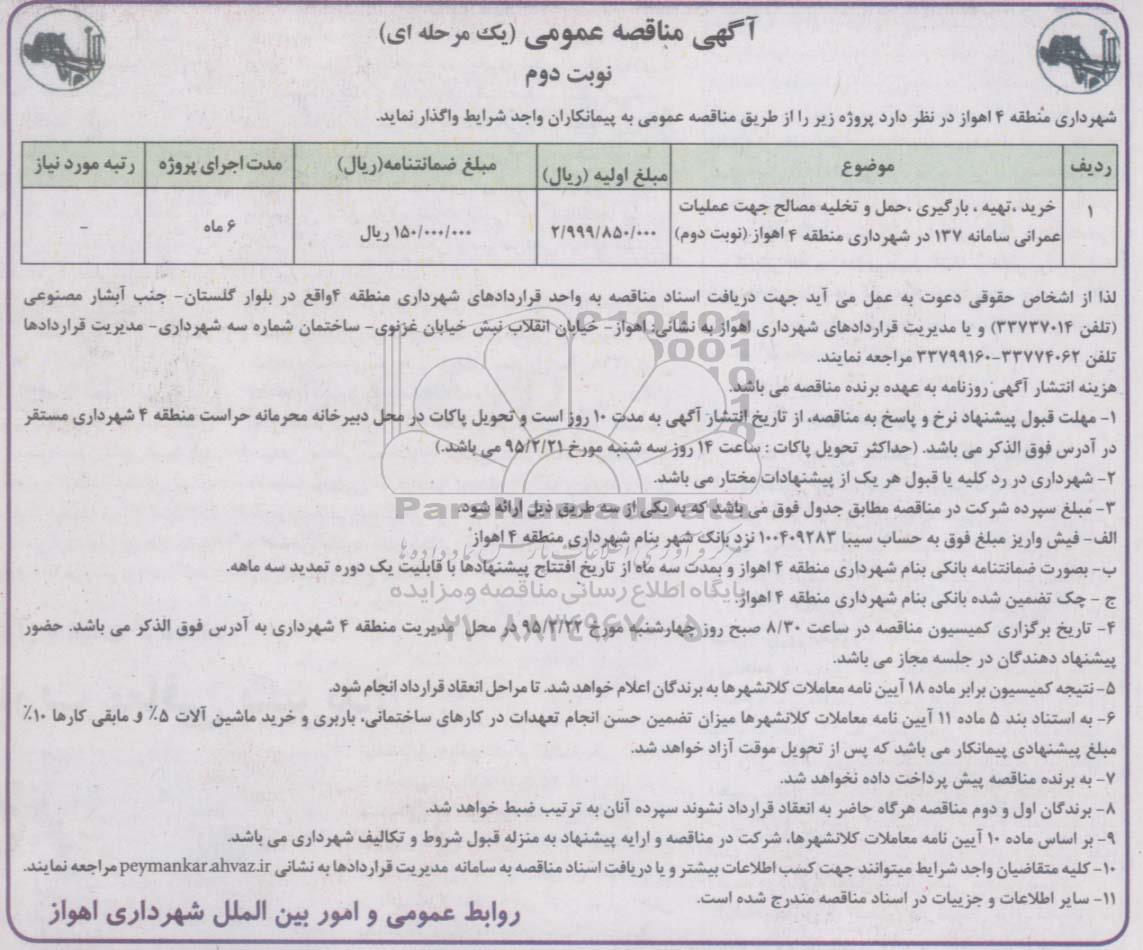 آگهی مناقصه عمومی (یک مرحله ای)
نوبت دوم
شهرداری منطقه ۴ اهواز در نظر دارد پروژه زیر را از طریق مناقصه عمومی به پیمانکاران واجد شرایط واگذار نماید.
ردیف موضوع مبلغ اولیه (ریال) مبلغ ضمانتنامه(ریال) مدت اجرای پروژه رتبه مورد نیاز
۱ خرید ،تهیه ، بارگیری ،حمل و تخلیه مصالح جهت عملیات
عمرانی سامانه ۱۳۷ در شهرداری منطقه ۴ اهواز (نوبت دوم) ۲/۹۹۹/۸۵۰/۰۰۰ ۱۵۰/۰۰۰/۰۰۰ ریال ۶ ماه -
لذا از اشخاص حقوقی دعوت به عمل می آید جهت دریافت اسناد مناقصه به واحد قراردادهای شهرداری منطقه ۴واقع در بلوار گلستان- جنب آبشار مصنوعی
(تلفن ۳۳۷۳۷۰۱۴) و یا مدیریت قراردادهای شهرداری اهواز به نشانی: اهواز- خیابان انقلاب نبش خیابان غزنوی- ساختمان شماره سه شهرداری- مدیریت قراردادها
تلفن ۳۳۷۷۴۰۶۲-۳۳۷۹۹۱۶۰ مراجعه نمایند.
هزینه انتشار آگهی روزنامه به عهده برنده مناقصه می باشد.
۱- مهلت قبول پیشنهاد نرخ و پاسخ به مناقصه، از تاریخ انتشار آگهی به مدت ۱۰ روز است و تحویل پاکات در محل دبیرخانه محرمانه حراست منطقه ۴ شهرداری مستقر
در آدرس فوق الذکر می باشد. (حداکثر تحویل پاکات : ساعت ۱۴ روز سه شنبه مورخ ۹۵/۲/۲۱ می باشد.)
۲- شهرداری در رد کلیه یا قبول هر یک از پیشنهادات مختار می باشد.
۳- مبلغ سپرده شرکت در مناقصه مطابق جدول فوق می باشد که به یکی از سه طریق ذیل ارائه شود.
ParsNamadData
الف- فیش واریز مبلغ فوق به حساب سیبا ۱۰۰۴۰۹۲۸۳ نزد بانک شهر بنام شهرداری منطقه ۴ اهواز
ب- بصورت ضمانتنامه بانکی بنام شهرداری منطقه ۴ اهواز و بمدت سه ماه از تاریخ افتتاح پیشنهادها با قابلیت یک دوره تمدید سه ماهه.
پایگاه اطلاع رسانی مناقصه ومزایده
ج - چک تضمین شده بانکی بنام شهرداری منطقه ۴ اهواز.
۴- تاریخ برگزاری کمیسیون مناقصه در ساعت ۸/۳۰ صبح روز چهارشنبه مورخ ۹۵/۲/۲۲ در محل مدیریت منطقه ۴ شهرداری به آدرس فوق الذکر می باشد. حضور
پیشنهاد دهندگان در جلسه مجاز می باشد.
۵- نتیجه کمیسیون برابر ماده ۱۸ آیین نامه معاملات کلانشهرها به برندگان اعلام خواهد شد. تا مراحل انعقاد قرارداد انجام شود.
۶- به استناد بند ۵ ماده ۱۱ آیین نامه معاملات کلانشهرها میزان تضمین حسن انجام تعهدات در کارهای ساختمانی، باربری و خرید ماشین آلات ۵٪ و مابقی کارها ۱۰٪
مبلغ پیشنهادی پیمانکار می باشد که پس از تحویل موقت آزاد خواهد شد.
۷- به برنده مناقصه پیش پرداخت داده نخواهد شد.
۸- برندگان اول و دوم مناقصه هرگاه حاضر به انعقاد قرارداد نشوند سپرده آنان به ترتیب ضبط خواهد شد.
۹- بر اساس ماده ۱۰ آیین نامه معاملات کلانشهرها، شرکت در مناقصه و ارایه پیشنهاد به منزله قبول شروط و تکالیف شهرداری می باشد.
۱۰- کلیه متقاضیان واجد شرایط میتوانند جهت کسب اطلاعات بیشتر و یا دریافت اسناد مناقصه به سامانه مدیریت قراردادها به نشانی peymankar.ahvaz.ir مراجعه نمایند.
۱۱- سایر اطلاعات و جزییات در اسناد مناقصه مندرج شده است.
روابط عمومی و امور بین الملل شهرداری اهواز